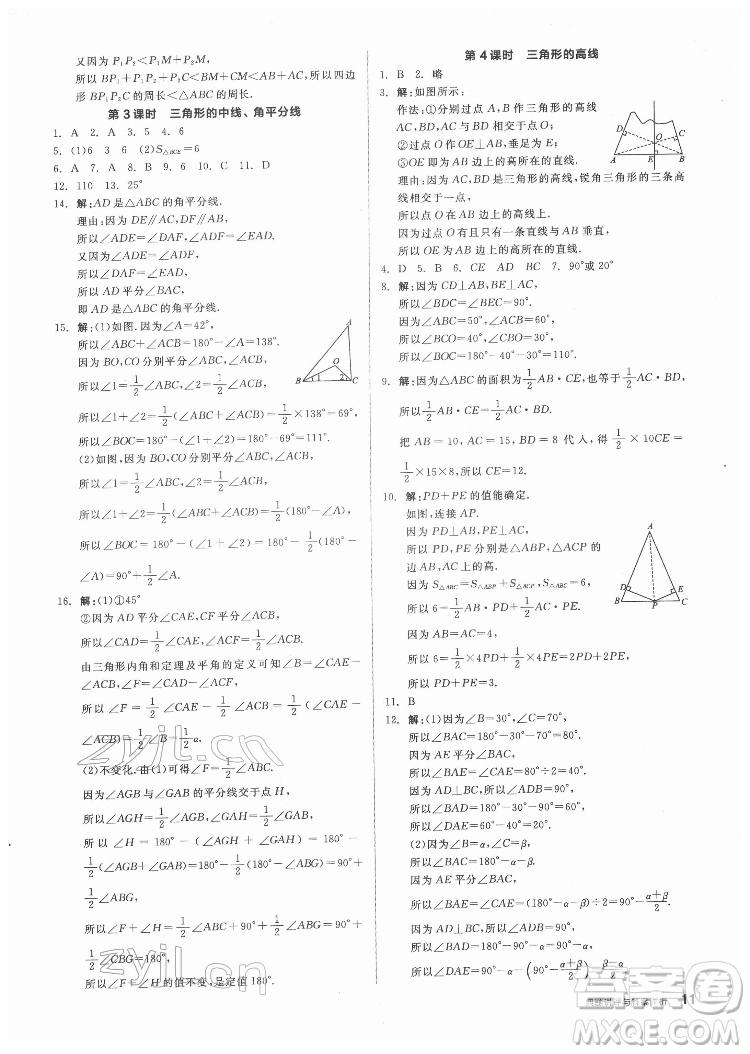 又因为 P₁P₂<P₁M+P₂M,
所以 P₁B+P₁P₂+P₂C<BM+CM,所以四边
形 BP₁P₂C 的周长<△ABC 的周长.
第 3 课时 三角形的中线、角平分线
1. A 2. A 3. 5 4. 6
5. (1)6 3 6 (2)S△BCE=6
6. A 7. A 8. B 9. C 10. A 11. A
12. 110 13. 25°
14. 解:AD 是△ABC 的角平分线.
理由:因为 DE∥AC,DF∥AB,
所以∠ADE=∠DAF,∠ADF=∠DAE.
又因为∠ADE=∠ADF,
所以∠DAF=∠DAE.
即 AD 是△ABC 的角平分线.
15. 解:(1)如图.因为∠A=42°,
所以∠ABC+∠ACB=180°-∠A=138°.
因为 BO,CO 分别平分∠ABC,∠ACB,
所以∠1=1/2∠ABC,∠2=1/2∠ACB.
所以∠1+∠2=1/2(∠ABC+∠ACB)=1/2×138°=69°,
所以∠BOC=180°-(∠1+∠2)=180°-69°=111°.
(2)如图.因为 BO,CO 分别平分∠ABC,∠ACB,
所以∠1=1/2∠ABC,∠2=1/2∠ACB.
所以∠1+∠2=1/2(∠ABC+∠ACB)=1/2(180°-∠A).
所以∠BOC=180°-(∠1+∠2)=180°-1/2(180°-
∠A)=90°+1/2∠A.
A
O
B 1 2 C
16. 解:(1)①45°
②因为 AD 平分∠CAE,CF 平分∠ACB,
所以∠CAD=1/2∠CAE,∠ACF=1/2∠ACB.
由三角形内角和定理及平角的定义可得
∠F=∠CAD-∠ACF,∠B=∠CAE-∠ACB,
所以∠F=1/2∠CAE-1/2∠ACB=1/2(∠CAE-
∠ACB)=1/2∠B=1/2α.
(2)不变化.由(1)可得∠F=1/2∠ABC.
因为∠AGB与∠GAB的平分线交于点 H,
所以∠AGH=1/2∠AGB,∠GAH=1/2∠GAB.
所以∠H=180°-(∠AGH+∠GAH)=180°-
1/2(∠AGB+∠GAB)=180°-1/2(180°-∠ABG)=90°+
1/2∠ABG,
所以∠F+∠H=1/2∠ABC+90°+1/2∠ABG=90°+
1/2∠CBG=180°.
所以∠F+∠H 的值不变,是定值 180°.
第 4 课时 三角形的高线
1. B 2. 略
3. 解:如图所示:
作法:①分别过点 A,B 作线段
AC,BD 相交于点 O;
②过点 O 作 OE⊥AB;
③OE 就是 AB 上的高所在的直线.
理由:因为三角形的三条高所在的直线,锐角三角形的三条高
线相交于一点,
所以点 O 在 AB 的高线上.
因为过点 O 有且只有一条直线与 AB 垂直,
所以 OE 为 AB 的高所在的直线.
D C
O
A E B
4. D 5. B 6. CE AD BC 7. 90°或20°
8. 解:因为CD⊥AB,BE⊥AC,
所以∠BDC=∠BEC=90°.
因为∠ABC=50°,∠ACB=60°,
所以∠BCO=40°,∠CBO=30°.
所以∠BOC=180°-40°-30°=110°.
9. 解:因为△ABC 的面积为1/2AB·CE,也等于1/2AC·BD,
所以1/2AB·CE=1/2AC·BD.
把 AB=10,AC=15,BD=8 代入,得1/2×10CE=
1/2×15×8,所以CE=12.
10. 解:PD+PE 的值能确定.
如图,连接 AP.
因为 PD⊥AB,PE⊥AC,
所以 PD,PE 分别是△ABP,△ACP 的
边 AB,AC 上的高.
因为 S△ABC=S△ABP+S△ACP,
所以 6=1/2AB·PD+1/2AC·PE.
因为 AB=AC=4,
所以 6=1/2×4PD+1/2×4PE=2PD+2PE,
所以 PD+PE=3.
A
D E
B P C
11. B
12. 解:(1)因为∠B=30°,∠C=70°,
所以∠BAC=180°-30°-70°=80°.
因为 AE 平分∠BAC,
所以∠BAE=80°÷2=40°.
因为 AD⊥BC,所以∠ADB=90°,
所以∠BAD=180°-90°-30°=60°,
所以∠DAE=60°-40°=20°.
(2)因为∠B=α,∠C=β,
所以∠BAC=180°-α-β.
因为 AE 平分∠BAC,
所以∠BAE=∠CAE=(180°-α-β)÷2=90°-(α+β)/2.
因为 AD⊥BC,所以∠ADB=90°,
所以∠BAD=180°-90°-α=90°-α,
11
答案卷
zyjl.cn
zyjl.cn